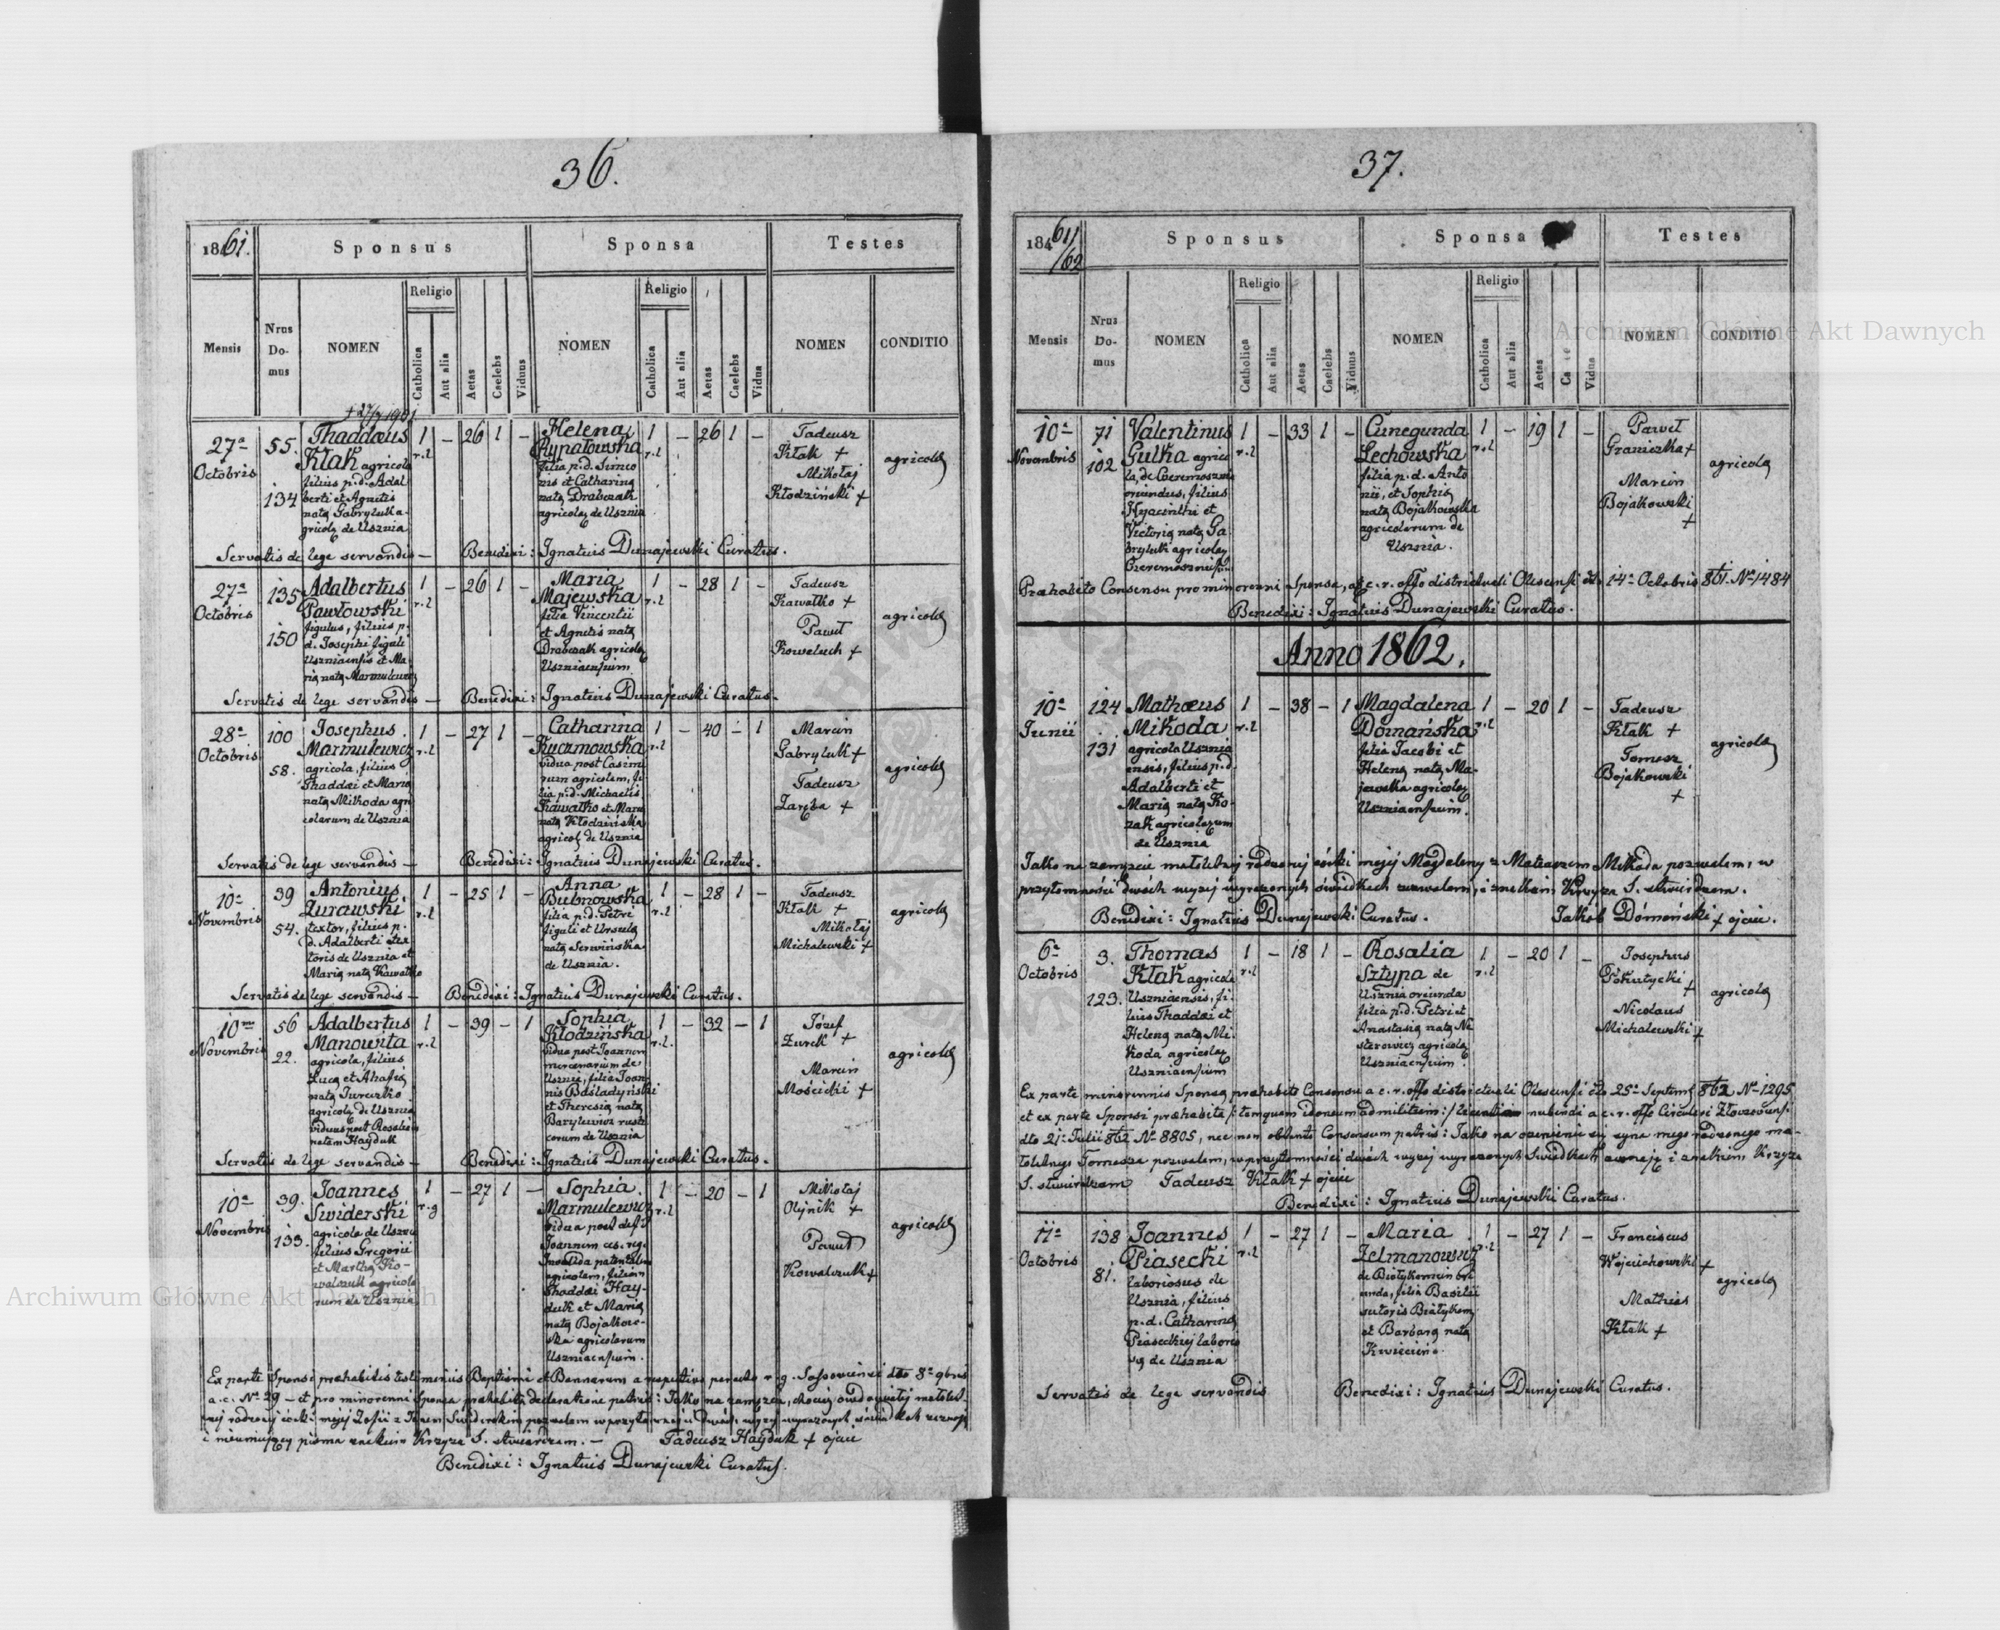 36.
1861.
Sponsus
Sponsa
Testes
Mensis
Nrus Domus
NOMEN
Religio
Catholica
Aut alia
Aetas
Caelebs
Viduus
NOMEN
Religio
Catholica
Aut alia
Aetas
Caelebs
Vidua
NOMEN
CONDITIO
27a Octobris
55.
134
Thaddaeus
Kłak agricola
filius p.d. Adal
berti et Agnetis
nata Gabryluk a-
gricola de Usznia
1 r.l
–
26
1
–
Helena
Rypałowska
filia p.d. Simeo
nis et Catharina
nata Drabczak
agricola de Usznia
1 r.l
–
26
1
–
Tadeusz
Kłak +
Mikołaj
Kłodziński +
agricola
Servatis de lege servandis – Benedixi: Ignatius Dunajewski Curatus.
27a Octobris
135
150
Adalbertus
Pawłowski
figulus, filius p.
d. Josephi figuli
Uszniaensis et Ma-
ria nata Marmulewicz
1 r.l
–
26
1
–
Maria
Majewska
filia Vincentii
et Agnetis nata
Drabczak agricola
Uszniaensium
1 r.l
–
28
1
–
Tadeusz
Kawałko +
Paweł
Kowaluch +
agricola
Servatis de lege servandis – Benedixi: Ignatius Dunajewski Curatus.
28a Octobris
100
58.
Josephus
Marmulewicz
agricola, filius
Thaddaei et Maria
nata Mikoda agri
colarum de Usznia
1 r.l
–
27
1
–
Catharina
Kuczmowska
vidua post Casimi
rum agricolam, fi
lia p.d. Michaelis
Kawałko et Maria
nata Kłodzińska
agricol. de Usznia
1 r.l
–
40
–
1
Marcin
Gabryluk +
Tadeusz
Zaręba +
agricola
Servatis de lege servandis – Benedixi: Ignatius Dunajewski Curatus.
10a Novembris
39
54.
Antonius
Żurawski
textor, filius p.
d. Adalberti tex
toris de Usznia et
Maria nata Kawałko
1 r.l
–
25
1
–
Anna
Bubnowska
filia p.d. Petri
figuli et Ursula
nata Serwińska
de Usznia.
1 r.l
–
28
1
–
Tadeusz
Kłak +
Mikołaj
Michalewski +
agricola
Servatis de lege servandis – Benedixi: Ignatius Dunajewski Curatus.
10ma Novembris
56
22.
Adalbertus
Manowita
agricola, filius
Luca et Ahafia
nata Jureczko
agricola de Usznia
viduus post Rosaliam
natam Hayduk
1 r.l
–
39
–
1
Sophia
Kłodzińska
vidua post Joannem
mercenarium de
Usznia, filia Joan
nis Bósładyński
et Theresia nata
Barylewicz rusti
corum de Usznia
1 r.l.
–
32
–
1
Józef
Żurek +
Marcin
Mościcki +
agricola
Servatis de lege servandis – Benedixi: Ignatius Dunajewski Curatus.
10a Novembris
39.
133.
Joannes
Świderski
agricola de Usznia
filius Gregorii
et Martha Ko-
walczuk agricola
rum de Usznia
1 r.g
–
27
1
–
Sophia
Marmulewicz
vidua post deff.
Joannem
agricolam, filia
Thaddaei Hay-
duk et Maria
nata Bojakow-
ska agricolarum
Uszniaensium.
1 r.l
–
20
–
1
Mikołaj
Olijnik +
Paweł
Kowalczuk +
agricola
Ex parte Sponsi praehabitis testimoniis Baptismi et Bannorum a respectivo parocho r. g. Sassoviensi dto 8a 9bris
a.c. No 29 – et pro minorenni Sponsa praehabita declaratione patris: Jako na zamężcie, chociaż owdowiałej małolet-
niej rodzonej córki mojej Zofii z Janem Świderskim pozwalam w przytomności dwóch wyżej wyrażonych świadków zeznaję
i nieumiejący pisma znakiem Krzyża S. stwierdzam. – Tadeusz Hayduk + ojciec
Benedixi: Ignatius Dunajewski Curatus.
37.
18461/62
Sponsus
Sponsa
Testes
Mensis
Nrus Domus
NOMEN
Religio
Catholica
Aut alia
Aetas
Caelebs
Viduus
NOMEN
Religio
Catholica
Aut alia
Aetas
Vidua
NOMEN
CONDITIO
10a Novembris
71
102
Valentinus
Gulka agrico
la, de Czeremosznia
oriundus, filius
Hyacinthi et
Victoria nata Ga
bryluk agricola
Czeremoszniens.
1 r.l
–
33
1
–
Cunegunda
Lechowska
filia p.d. Anto
nii, et Sophia
nata Bojakowska
agricolarum de
Usznia.
1 r.l
–
19
1
–
Paweł
Graniczka +
Marcin
Bojakowski
+
agricola
Praehabito Consensu pro minorenni Sponsa, a c. r. offo districtuali Olescensi dto 14a Octobris 861. No 1484
Benedixi: Ignatius Dunajewski Curatus.
Anno 1862.
10a Junii
124
131
Mathaeus
Mikoda
agricola Usznia
ensis, filius p.d.
Adalberti et
Maria nata Ko-
zak agricolarum
de Usznia
1 r.l
–
38
–
1
Magdalena
Domańska
filia Jacobi et
Helena nata Ma-
jewska agricola
Uszniaensium.
1 r.l
–
20
1
–
Tadeusz
Kłak +
Tomasz
Bojakowski
+
agricola
Jako na zamężcie małoletniej rodzonej córki mojej Magdaleny z Mateuszem Mikoda pozwalam, w
przytomności dwóch wyżej wyrażonych świadkach zezwalam, i znakiem Krzyża S. stwierdzam.
Benedixi: Ignatius Dunajewski Curatus. Jakób Dómański + ojciec.
6a Octobris
3.
123.
Thomas
Kłak agricola
Uszniaensis, fi-
lius Thaddaei et
Helena nata Mi-
koda agricola
Uszniaensium
1 r.l
–
18
1
–
Rosalia
Sztypa de
Usznia oriunda
filia p.d. Petri et
Anastasia nata Ne
sterowicz agricola
Uszniaensium.
1 r.l
–
20
1
–
Josephus
Pokutycki +
Nicolaus
Michalewski +
agricola
Ex parte minorennis Sponsa praehabito Consensu a c. r. offo districtuali Olescensi dto 25a Septemb 862 No 1205
et ex parte Sponsi praehabita /: tamquam idoneum ad militiam :/ licentiam nubendi a c. r. offo Circulari Złoczoviensi
dto 21a Julii 862 No 8805, nec non obtento Consensum patris: Jako na ożenienie się syna mego rodzonego ma-
łoletniego Tomasza pozwalam, w przytomności dwóch wyżej wyrażonych Świadkach zeznaję i znakiem Krzyża
S. stwierdzam Tadeusz Kłak + ojciec
Benedixi: Ignatius Dunajewski Curatus.
11a Octobris
138
81.
Joannes
Piasecki
laboriosus de
Usznia, filius
p.d. Catharina
Piaseckiej laborio
sa de Usznia
1 r.l
–
27
1
–
Maria
Zelmanowicz
de Białykamień ori
unda, filia Basilii
sutoris Białykam.
et Barbara nata
Kwiecień.
1 r.l
–
27
1
–
Franciscus
Wojciechowski +
Mathias
Kłak +
agricola
Servatis de lege servandis Benedixi: Ignatius Dunajewski Curatus.
Archiwum Główne Akt Dawnych
Archiwum Główne Akt Dawnych